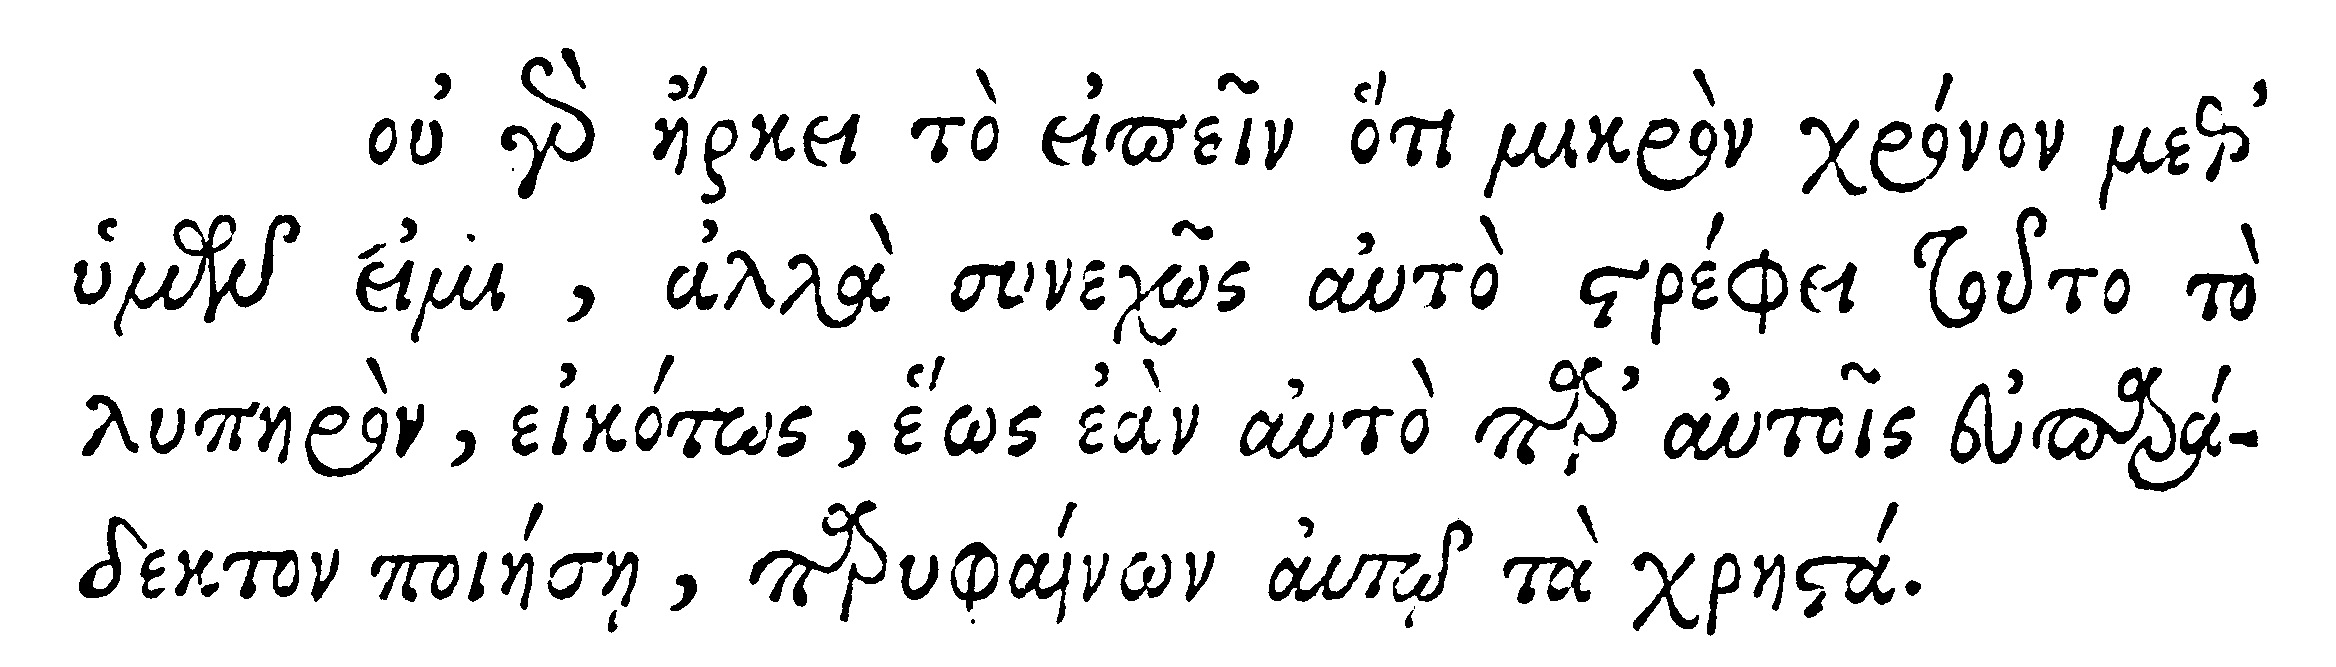 οὐ γὰρ ἤρκει τὸ εἰπεῖν ὅτι μικρὸν χρόνον μεθ’
ὑμῶν εἰμι, ἀλλὰ συνεχῶς αὐτὸ στρέφει τοῦτο τὸ
λυπηρὸν, εἰκότως, ἕως ἐὰν αὐτὸ παρ’ αὐτοῖς εὐπαρά-
δεκτον ποιήσῃ, παρυφαίνων αὐτῷ τὰ χρηστά.